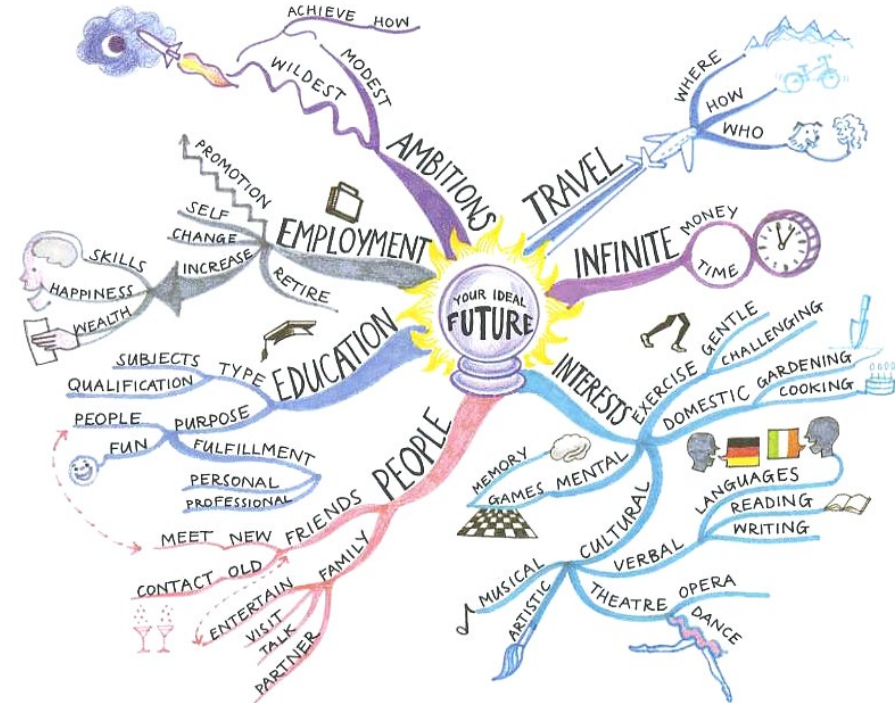 YOUR IDEAL
FUTURE
AMBITIONS
MODEST
ACHIEVE HOW
WILDEST
TRAVEL
WHERE
HOW
WHO
INFINITE
MONEY
TIME
INTERESTS
EXERCISE
GENTLE
CHALLENGING
DOMESTIC
GARDENING
COOKING
MENTAL
GAMES
MEMORY
CULTURAL
VERBAL
LANGUAGES
READING
WRITING
THEATRE
OPERA
DANCE
ARTISTIC
MUSICAL
PEOPLE
FRIENDS
NEW
MEET
OLD
CONTACT
FAMILY
ENTERTAIN
VISIT
TALK
PARTNER
EDUCATION
TYPE
SUBJECTS
QUALIFICATION
PURPOSE
PEOPLE
FUN
FULFILLMENT
PERSONAL
PROFESSIONAL
EMPLOYMENT
PROMOTION
SELF
CHANGE
INCREASE
SKILLS
HAPPINESS
WEALTH
RETIRE